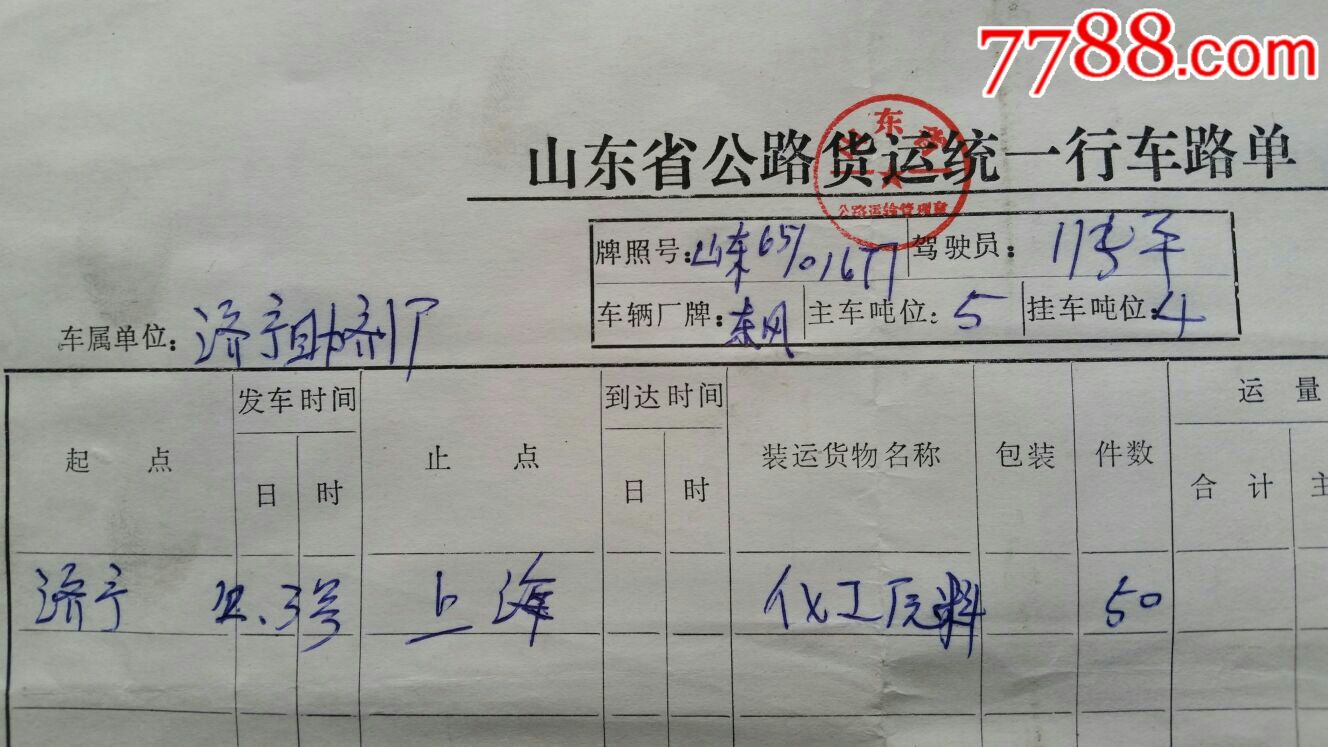 7788.com
山东省公路货运统一行车路单
山东省
公路运输管理局
牌照号: 山东65/01677 驾驶员:
车辆厂牌: 东风 主车吨位: 5 挂车吨位: 4
车属单位: 济宁助剂厂
起点 发车时间 止点 到达时间 装运货物名称 包装 件数 运量
日 时 日 时 合计 主
济宁 3号 上海 化工原料 50